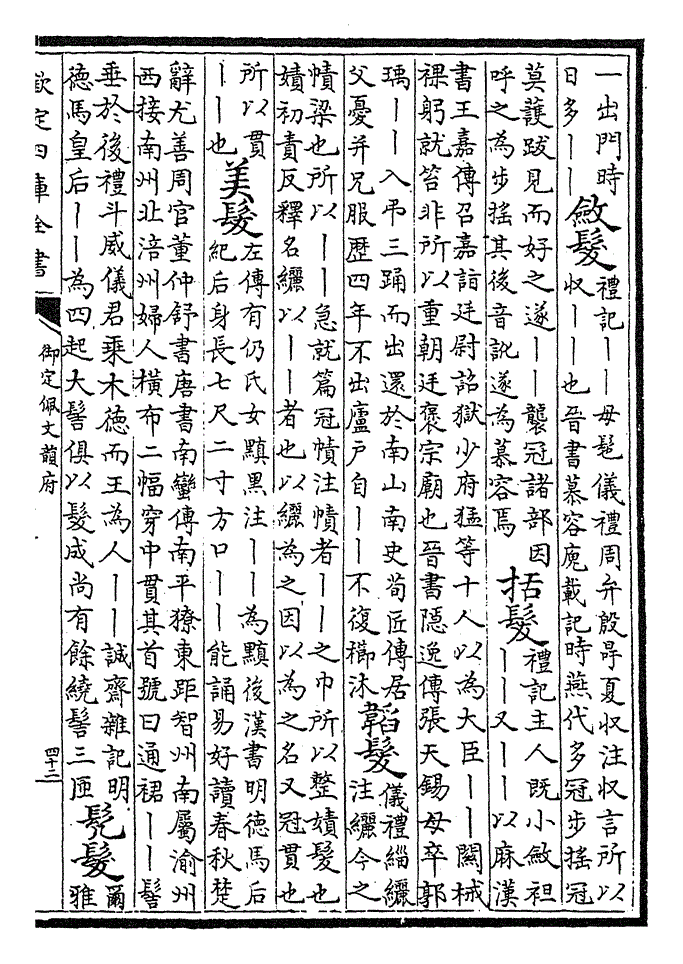 一出門時
日多丨丨
斂髮
禮記丨丨毋髢儀禮周弁殷冔夏收注收言所以
收丨丨也晉書慕容廆載記時燕代多冠步搖冠
莫護跋見而好之遂丨丨襲冠諸部因
呼之為步搖其後音訛遂為慕容焉
括髮
禮記主人既小斂袒
丨丨又丨丨以麻漢
書王嘉傳召嘉詣廷尉詔獄少府猛等十人以為大臣丨丨關械
裸躬就笞非所以重朝廷褒宗廟也晉書隱逸傳張天錫母卒郭
瑀丨丨入弔三踊而出還於南山南史荀匠傳居
父憂并兄服歷四年不出廬戶自丨丨不復櫛沐
韜髮
儀禮緇纚
注纚今之
幘梁也所以丨丨急就篇冠幘注幘者丨丨之巾所以整嫧髮也
嫧初責反釋名纚以丨丨者也以纚為之因以為之名又冠貫也
所以貫
丨丨也
美髮
左傳有仍氏女黰黑注丨丨為黰後漢書明德馬后
紀后身長七尺二寸方口丨丨能誦易好讀春秋楚
辭尤善周官董仲舒書唐書南蠻傳南平獠東距智州南屬渝州
西接南州北涪州婦人橫布二幅穿中貫其首號曰通裙丨丨髻
垂於後禮斗威儀君乘木德而王為人丨丨誠齋雜記明
德馬皇后丨丨為四起大髻俱以髮成尚有餘繞髻三匝
髠髮
爾
雅
欽定四庫全書
御定佩文韻府
四十二